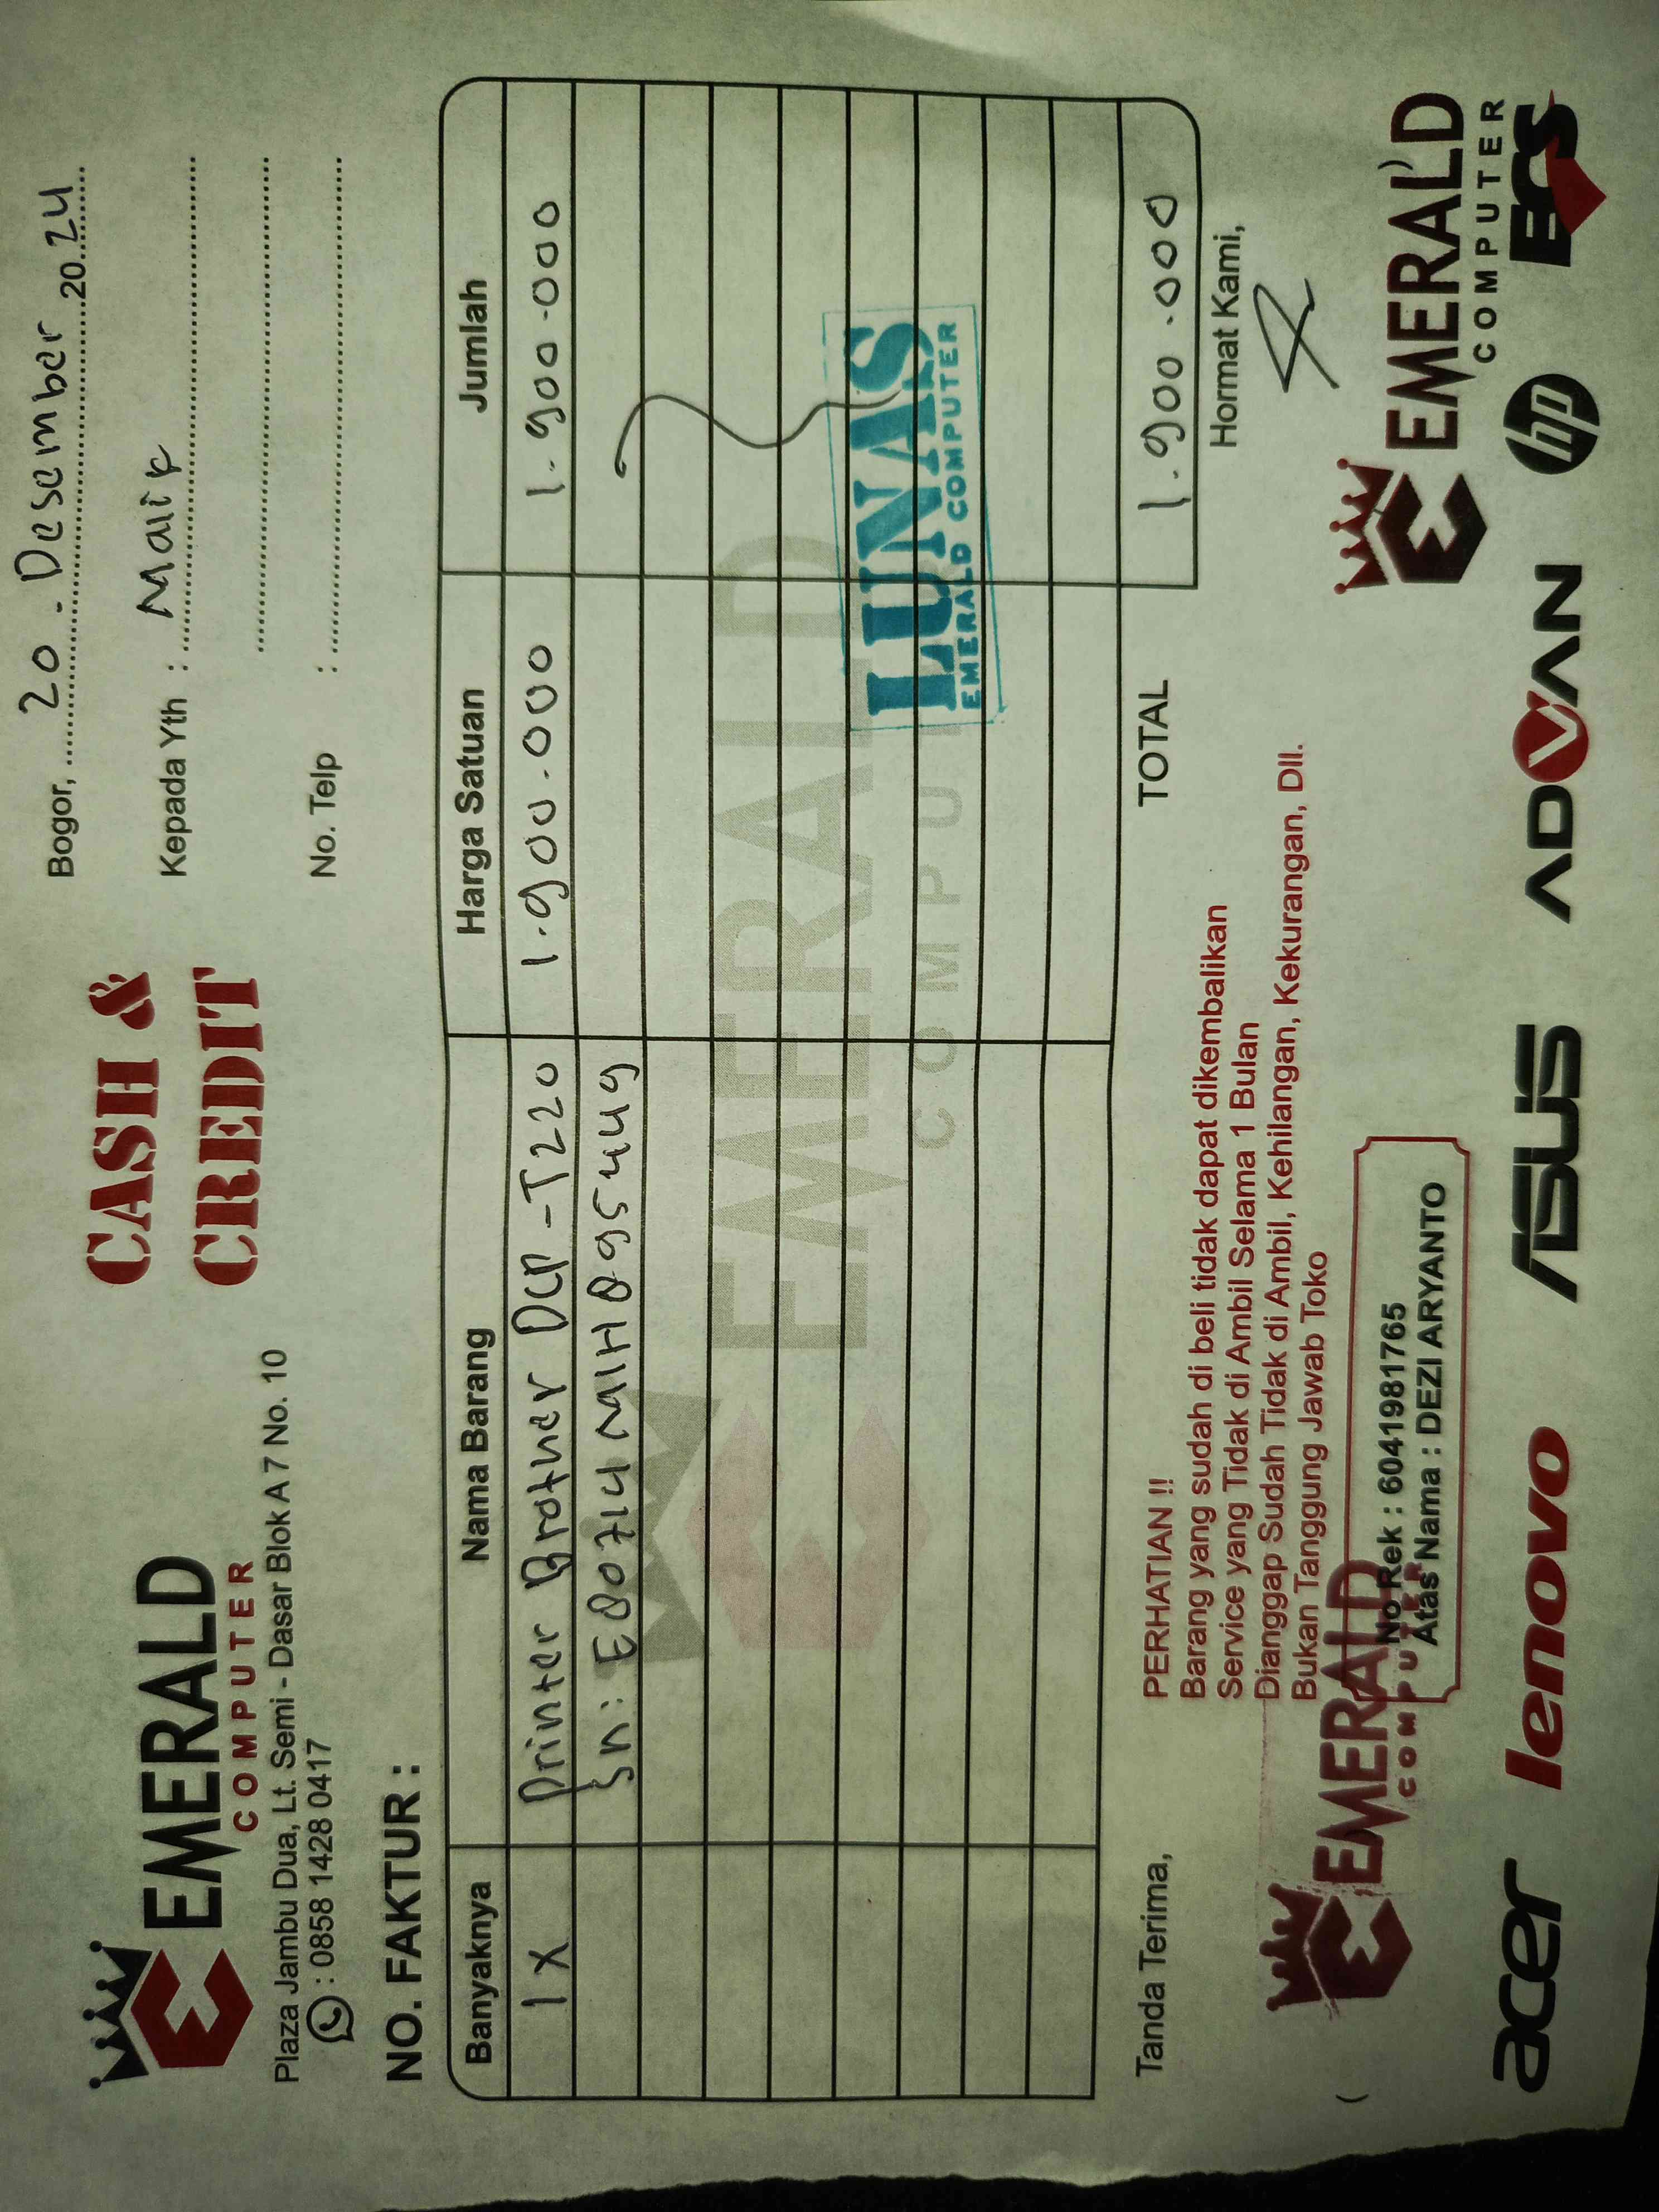 EMERALD
COMPUTER
Plaza Jambu Dua, Lt. Semi - Dasar Blok A 7 No. 10
: 0858 1428 0417
CASH &
CREDIT
Bogor, 20 - Desember 2024
Kepada Yth : Malik
No. Telp :
NO. FAKTUR :
Banyaknya Nama Barang Harga Satuan Jumlah
1x Printer Brother DCP-T220 1.900.000 1.900.000
Sn: E80714M1H895449
EMERALD
COMPU
LUNAS
EMERALD COMPUTER
TOTAL 1.900.000
Tanda Terima,
PERHATIAN !!
Barang yang sudah di beli tidak dapat dikembalikan
Service yang Tidak di Ambil Selama 1 Bulan
Dianggap Sudah Tidak di Ambil, Kehilangan, Kekurangan, Dll.
Bukan Tanggung Jawab Toko
Hormat Kami,
EMERALD
COMPUTER
No Rek : 6041981765
Atas Nama : DEZI ARYANTO
EMERALD
COMPUTER
acer lenovo ASUS ADVAN hp ECS